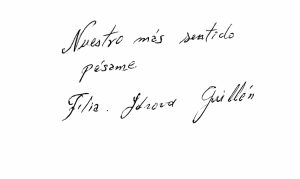 Nuestro más sentido
pésame.
FLia. Idrova Guillén